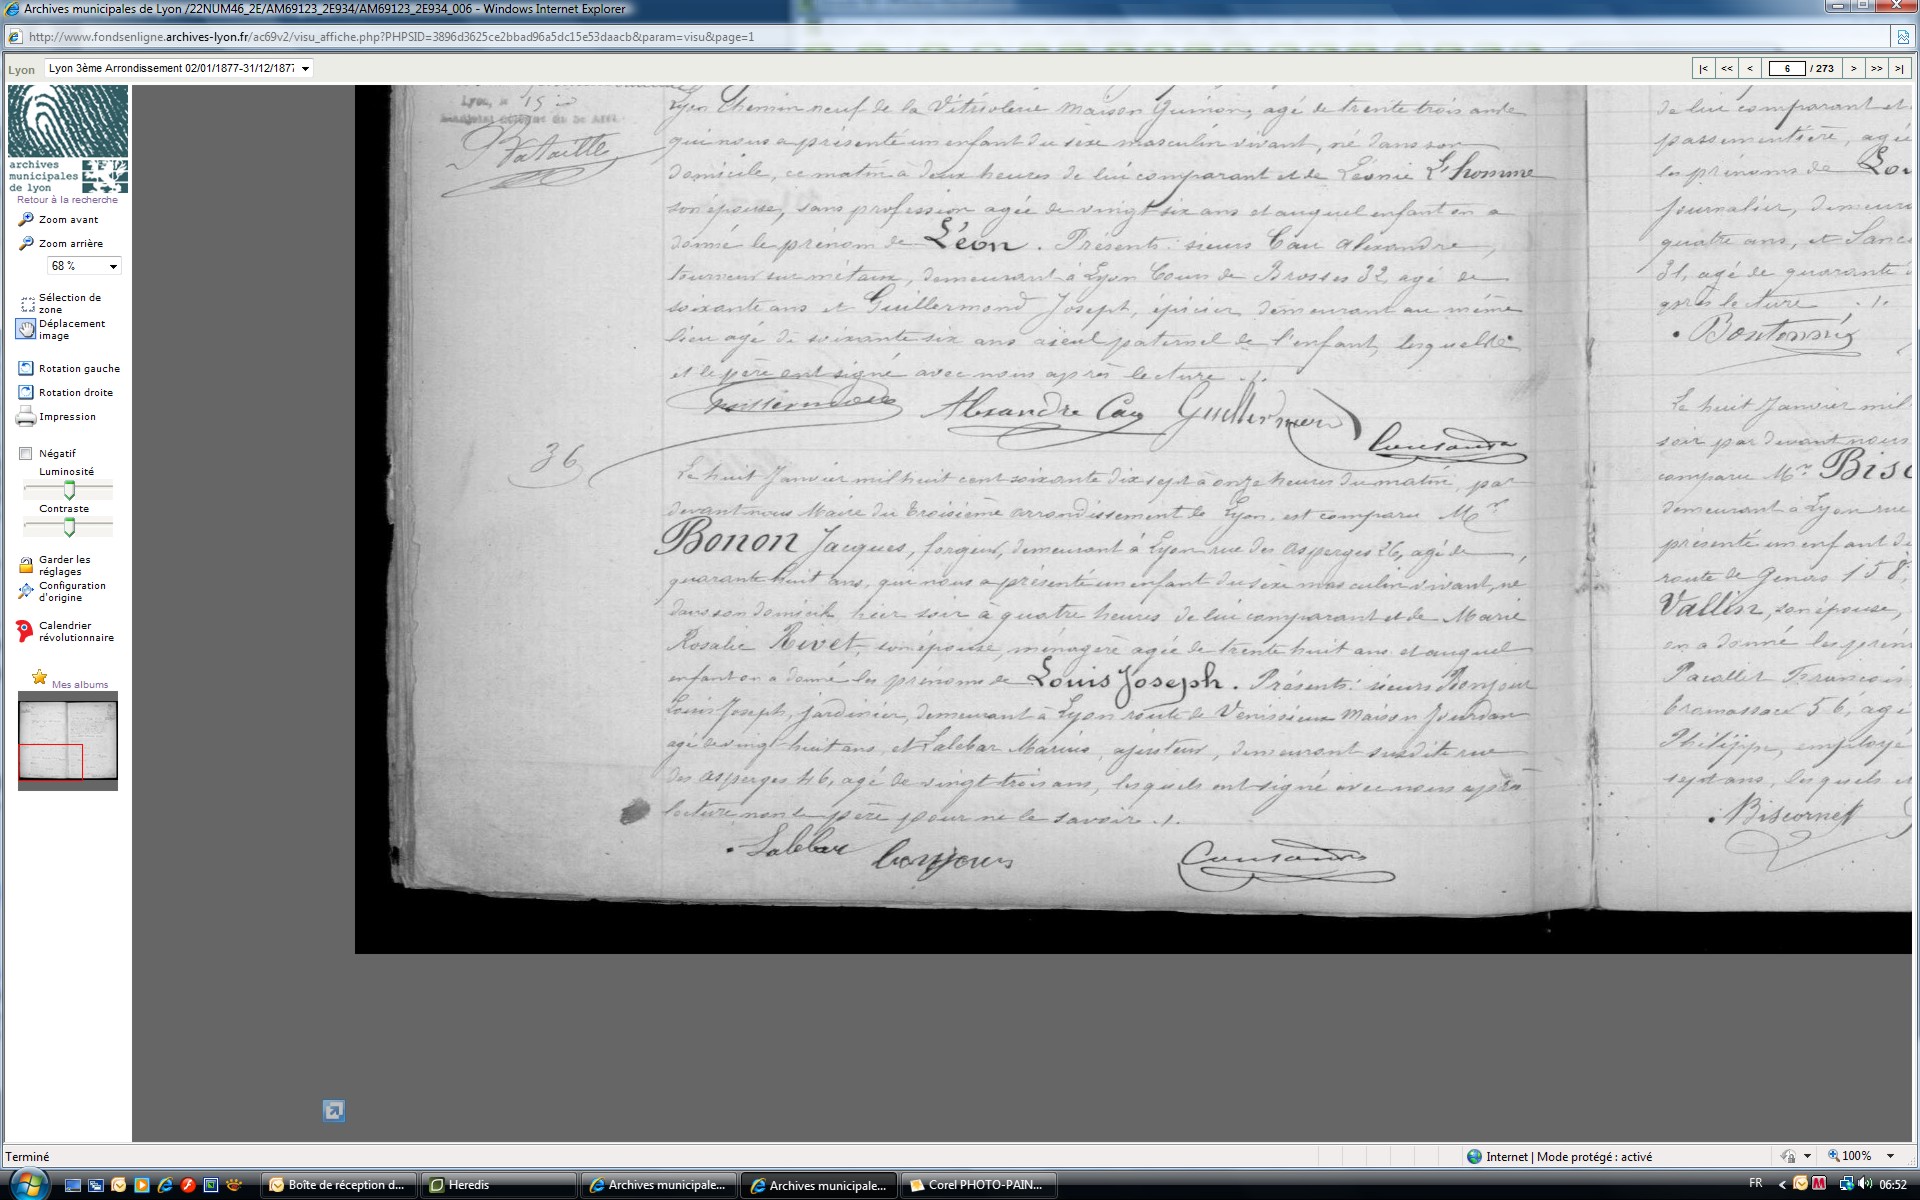 Archives municipales de Lyon /22NUM46_2E/AM69123_2E934/AM69123_2E934_006 - Windows Internet Explorer
http://www.fondsenligne.archives-lyon.fr/ac69v2/visu_affiche.php?PHPSID=3896d3625ce2bbad96a5dc15e53daacb&param=visu&page=1
Lyon
Lyon 3ème Arrondissement 02/01/1877-31/12/1877
|< << < 6 / 273 > >> >|
archives
municipales
de lyon
Retour à la recherche
Zoom avant
Zoom arrière
68 %
Sélection de
zone
Déplacement
image
Rotation gauche
Rotation droite
Impression
Négatif
Luminosité
Contraste
Garder les
réglages
Configuration
d'origine
Calendrier
révolutionnaire
Mes albums
Lyon, le 15
Bataille
Lyon Chemin neuf de la Vitriolerie Maison Guinon, agé de trente trois ans
qui nous a présenté un enfant du sexe masculin vivant, né dans son
domicile, ce matin à deux heures de lui comparant et de Léonie L'homme
son épouse, sans profession agée de vingt six ans et auquel enfant on a
donné le prénom de Léon. Présents: sieurs Cau Alexandre,
tourneur sur métaux, demeurant à Lyon Cours de Brosses 32, agé de
soixante ans et Guillermond Joseph, épicier demeurant au même
lieu agé de soixante six ans aieul paternel de l'enfant, lesquels
et le père ont signé avec nous après lecture ./.
Alexandre Cau Guillermond
36
Le huit Janvier mil huit cent soixante dix sept à onze heures du matin, par
devant nous Maire du troisième arrondissement de Lyon, est comparu Mr
Bonon Jacques, forgeur, demeurant à Lyon rue des Asperges 26, agé de
quarante huit ans, qui nous a présenté un enfant du sexe masculin vivant, né
dans son domicile hier soir à quatre heures de lui comparant et de Marie
Rosalie Rivet, son épouse, ménagère agée de trente huit ans et auquel
enfant on a donné les prénoms de Louis Joseph. Présents: sieurs Bonjour
Louis Joseph, jardinier, demeurant à Lyon route de Venissieux Maison Jourdan
agé de vingt huit ans, et Lalebar Marius, ajusteur, demeurant susdite rue
des Asperges 46, agé de vingt trois ans, lesquels ont signé avec nous après
lecture non le père pour ne le savoir ./.
Lalebar bonjour
de lui comparant et
passementière, agée
les prénoms de Lou
journalier, demeur
quatre ans, et
31, agé de quarante
après lecture ./.
Bontonnié
Le huit Janvier mil
soir par devant nous
comparu Mr Bisc
demeurant à Lyon rue
présenté un enfant de
route de Genas 158,
Vallin, son épouse,
on a donné les prén
Pacallet François
56, agé
Philippe, employé
sept ans, lesquels
Biscornet
Terminé
Internet | Mode protégé : activé
100%
Boîte de réception d...
Heredis
Archives municipale...
Archives municipale...
Corel PHOTO-PAIN...
FR
06:52